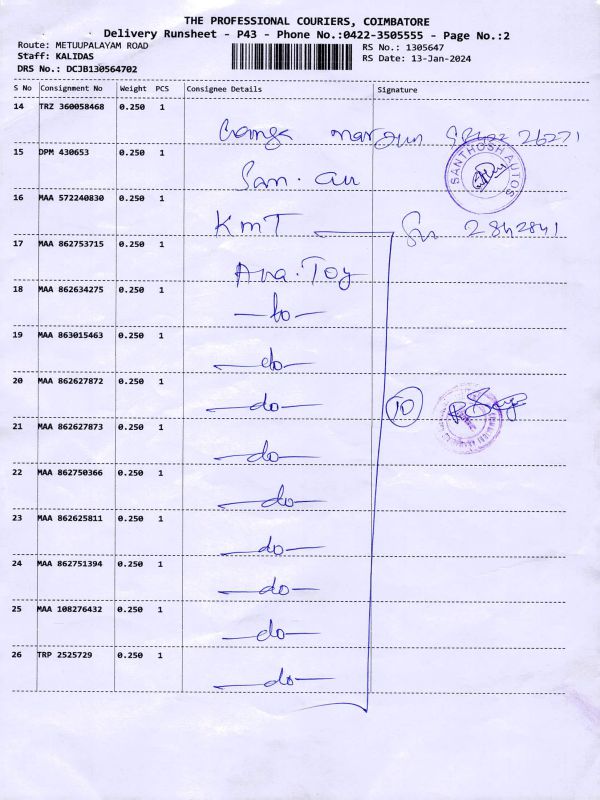 THE PROFESSIONAL COURIERS, COIMBATORE
Delivery Runsheet - P43 - Phone No.:0422-3505555 - Page No.:2
Route: METUUPALAYAM ROAD
RS No.: 1305647
Staff: KALIDAS
RS Date: 13-Jan-2024
DRS No.: DCJB130564702
S No Consignment No Weight PCS Consignee Details Signature
14 TRZ 360058468 0.250 1
15 DPM 430653 0.250 1 San. au
SANTHOSH AUTOS
16 MAA 572240830 0.250 1 KMT 2842841
17 MAA 862753715 0.250 1 Ana. Toy
18 MAA 862634275 0.250 1 -do-
19 MAA 863015463 0.250 1 -do-
20 MAA 862627872 0.250 1 -do- 10
21 MAA 862627873 0.250 1 -do-
22 MAA 862750366 0.250 1 -do-
23 MAA 862625811 0.250 1 -do-
24 MAA 862751394 0.250 1 -do-
25 MAA 108276432 0.250 1 -do-
26 TRP 2525729 0.250 1 -do-